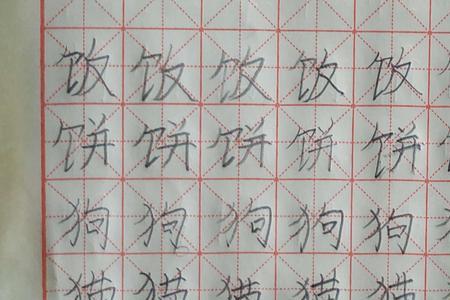 饭饭饭饭饭
饼饼饼饼饼
狗狗狗狗狗
猫猫猫猫猫